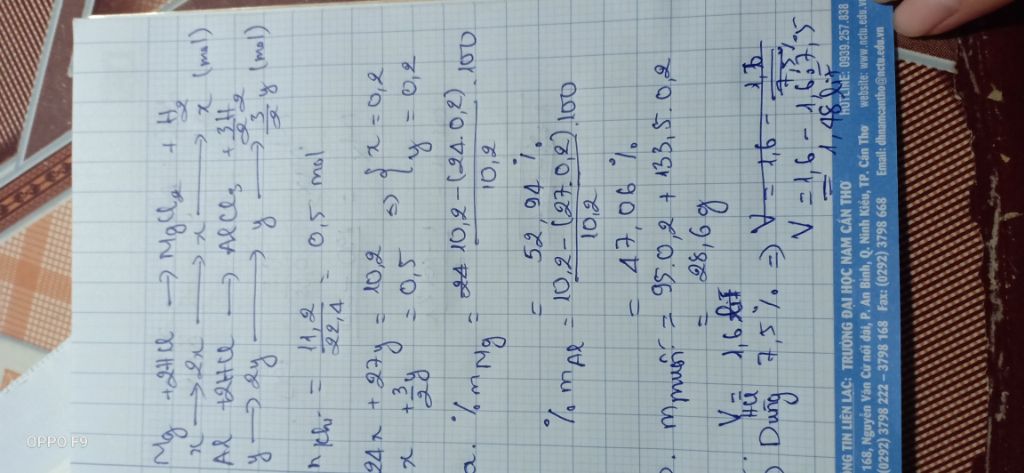 Mg + 2HCl → MgCl2 + H2
x → 2x → x → x (mol)
Al + 2HCl → AlCl3 + 3/2 H2
y → 2y → y → 3/2 y (mol)
n khí = 11,2/22,4 = 0,5 mol
24x + 27y = 10,2
x + 3/2 y = 0,5 => { x = 0,2
y = 0,2
a. % mMg = 10,2 - (24.0,2)/10,2 .100
= 52,94 %
% mAl = 10,2 - (27.0,2)/10,2 .100
= 47,06 %
m muối = 95.0,2 + 133,5.0,2
= 28,6 g
V HCl = 1,6 lít
Dùng 7,5 % =>
V = 1,6 - 1,6.7,5%
= 1,48 lít
NG TIN LIÊN LẠC: TRƯỜNG ĐẠI HỌC NAM CẦN THƠ HOTLINE: 0939.257.838
168, Nguyễn Văn Cừ nối dài, P. An Bình, Q. Ninh Kiều, TP. Cần Thơ website: www.nctu.edu.vn
(0292) 3798 222 – 3798 168 Fax: (0292) 3798 668 Email: dhnamcantho@nctu.edu.vn
OPPO F9